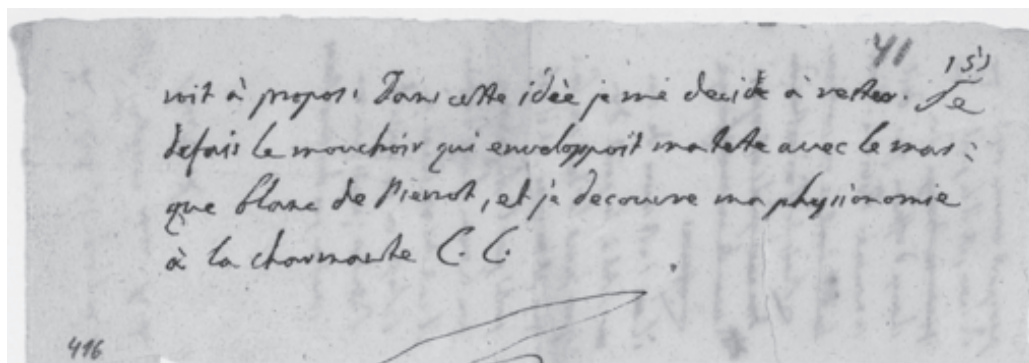 41
155
roit à propos. Dans cette idée je me decide à rester. Je
defais le mouchoir qui enveloppoit ma tete avec le mas:
que blanc de Pierrot, et je decouvre ma physionomie
à la charmante C. C.
416